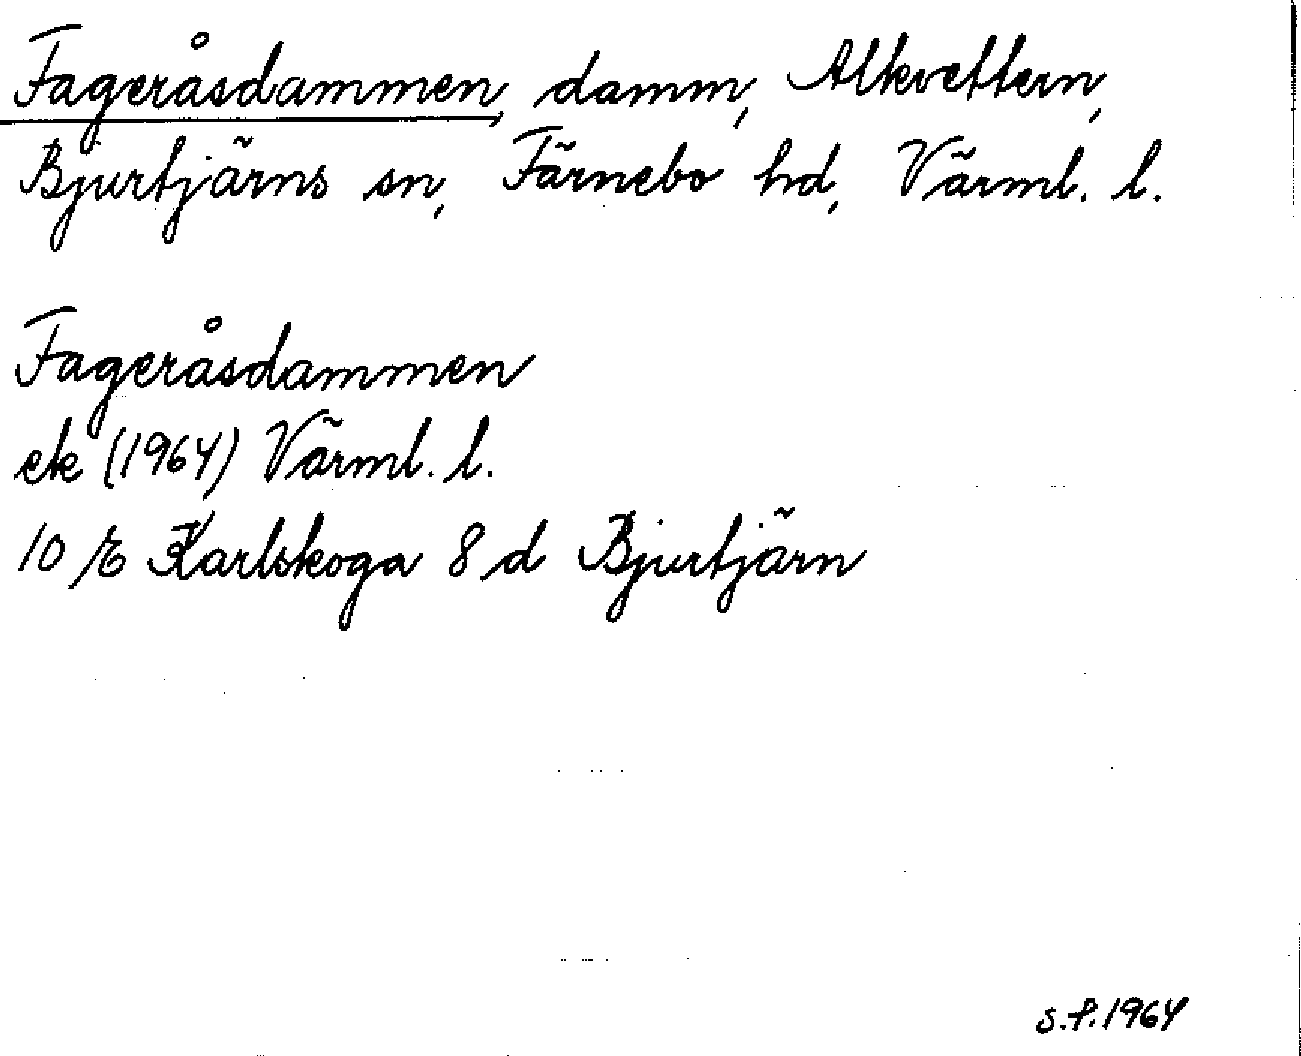 Fageråsdammen, damm, Alkvettern,
Bjurtjärns sn, Färnebo hd, Värml. l.
Fageråsdammen
ek (1964) Värml. l.
10 E Karlskoga 8 d Bjurtjärn
S.P. 1964